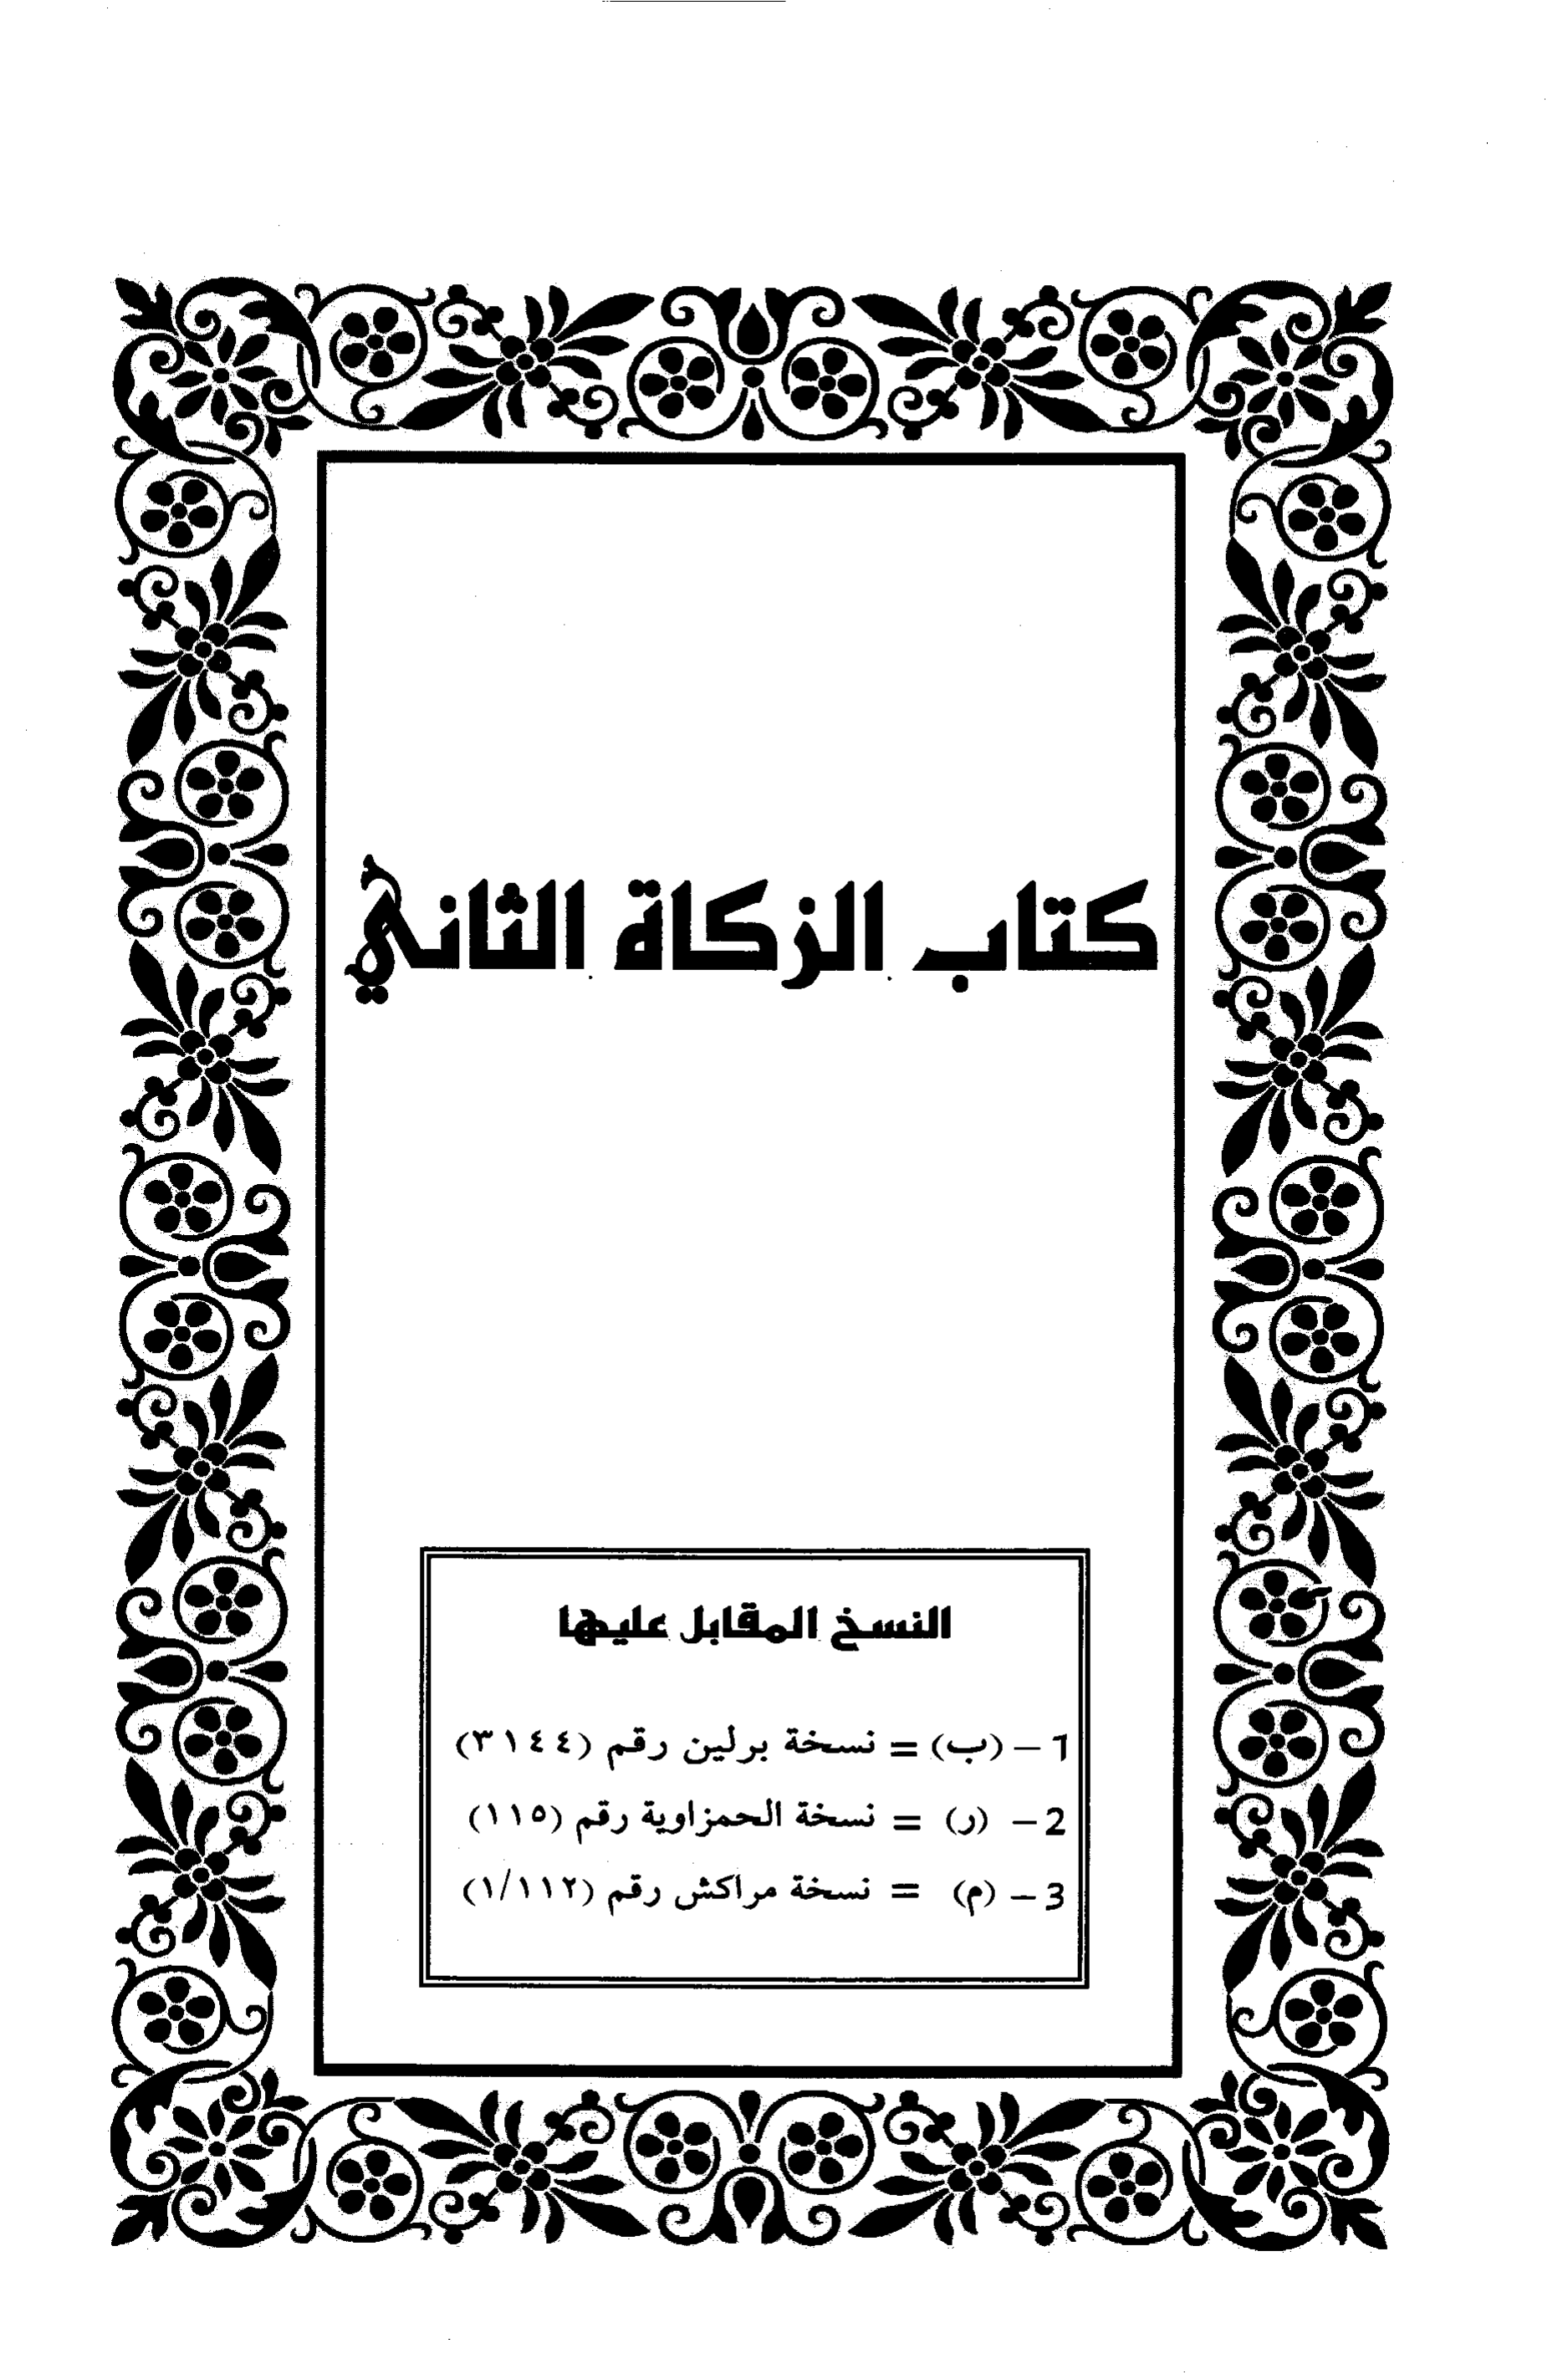 كتاب الزكاة الثاني
النسخ المقابل عليها
1 – (ب) = نسخة برلين رقم (٣١٤٤)
2 – (ر) = نسخة الحمزاوية رقم (١١٥)
3 – (م) = نسخة مراكش رقم (١/١١٢)